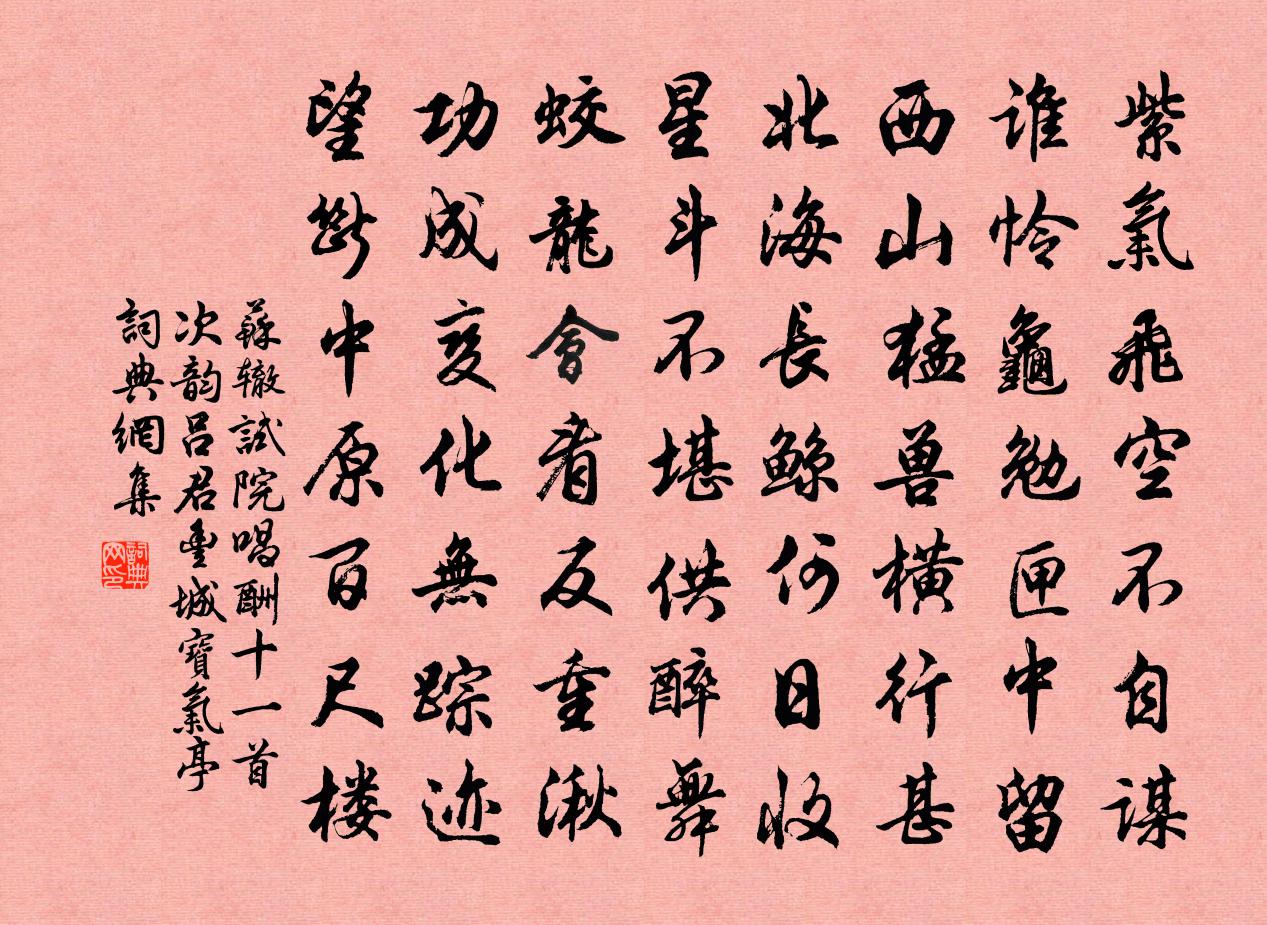 紫氣飛空不自謀
誰怜龜勉匣中留
西山猛兽橫行甚
北海長鯨何日收
星斗不堪供醉舞
蛟龍會看反重湫
功成变化無踪迹
望断中原百尺楼
蘇辙試院唱酬十一首
次韵吕君豐城寶氣亭
詞典網集
詞典网印